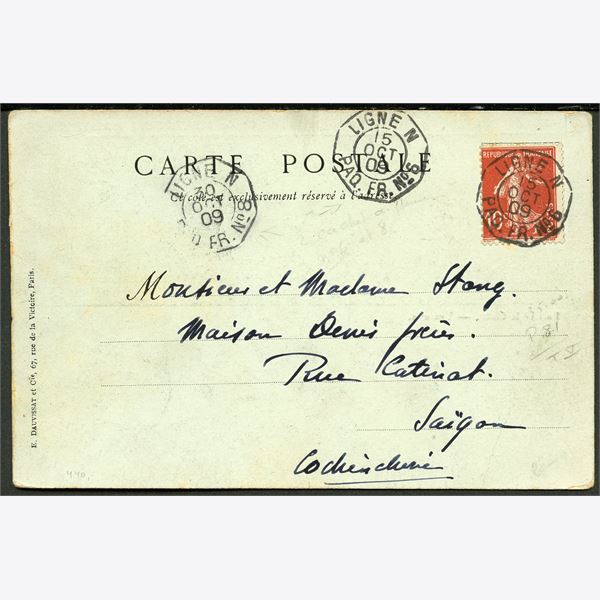 LIGNE N
15
OCT
09
PAQ. FR. No 6
REPUBLIQUE FRANÇAISE
LIGNE N
15
OCT
09
PAQ. FR. No 6
CARTE POSTALE
Ce côté est exclusivement réservé à l'adresse
LIGNE N
30
OCT
09
PAQ FR. No 8
Monsieur et Madame Stang.
Maison Denis frères.
Rue Catinat.
Saïgon
Cochinchine
E. DAUVISSAT et Cie, 67, rue de la Victoire, Paris.
440.